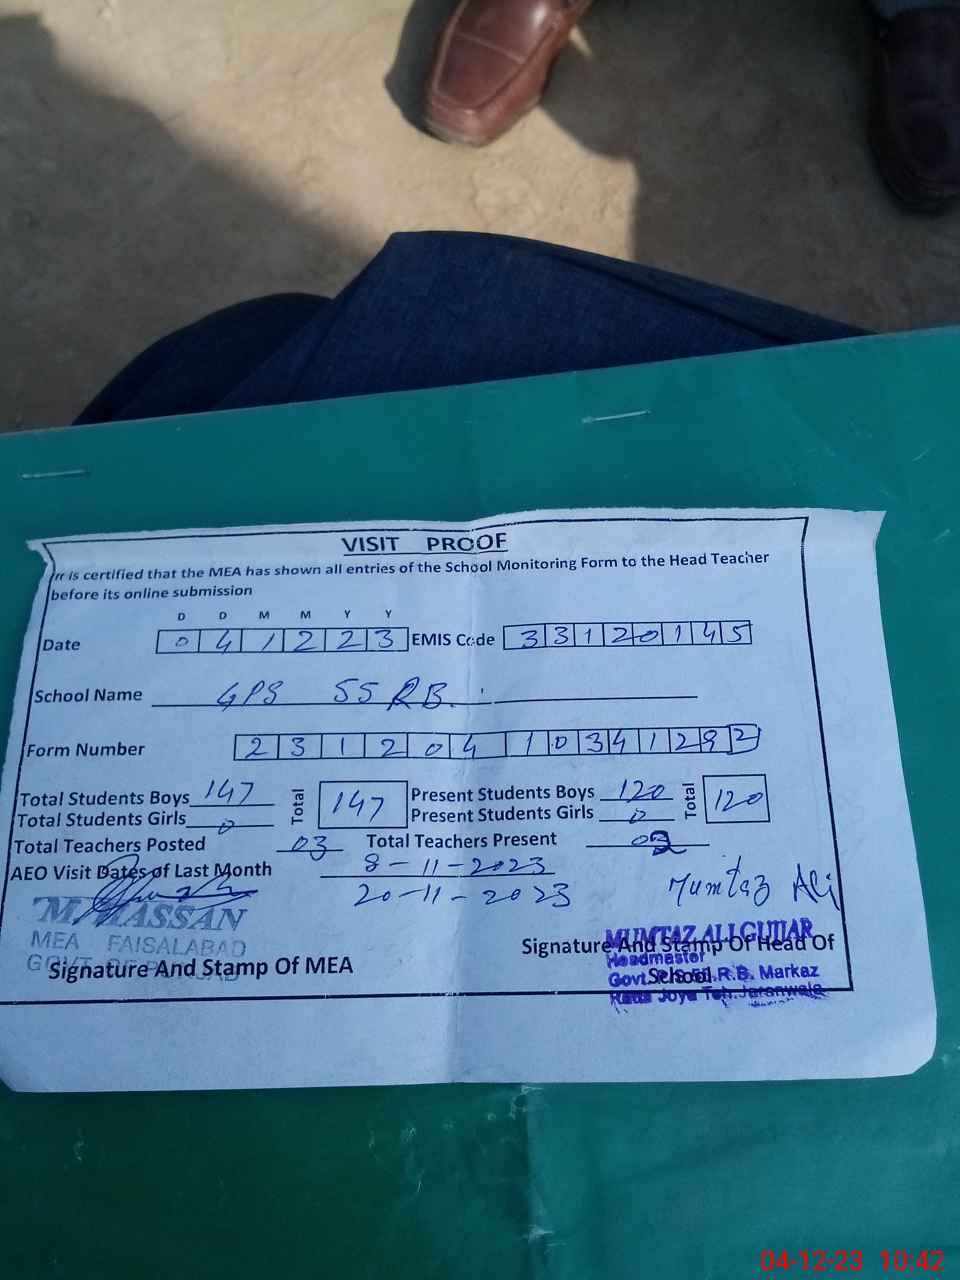 VISIT PROOF
It is certified that the MEA has shown all entries of the School Monitoring Form to the Head Teacher
before its online submission
D D M M Y Y
Date 0 4 1 2 2 3 EMIS Code 3 3 1 2 0 1 4 5
School Name GPS 55 RB.
Form Number 2 3 1 2 0 4 1 0 3 4 1 2 9 2
Total Students Boys 147 Total 147 Present Students Boys 120 Total 120
Total Students Girls 0 Present Students Girls 0
Total Teachers Posted 03 Total Teachers Present 03
AEO Visit Dates of Last Month 8-11-2023
20-11-2023 Mumtaz Ali
M. HASSAN
MEA FAISALABAD
Signature And Stamp Of MEA
MUMTAZ ALI GUJJAR
Signature And Stamp Of Head Of
Headmaster
School
Govt. R.B. Markaz
Joya Teh. Jaranwala
04-12-23 10:42